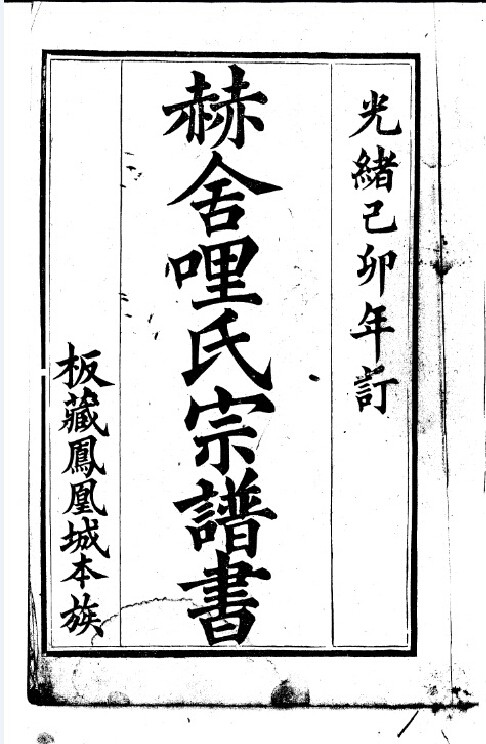 光緒己卯年訂
赫舍哩氏宗譜書
板藏鳳凰城本族